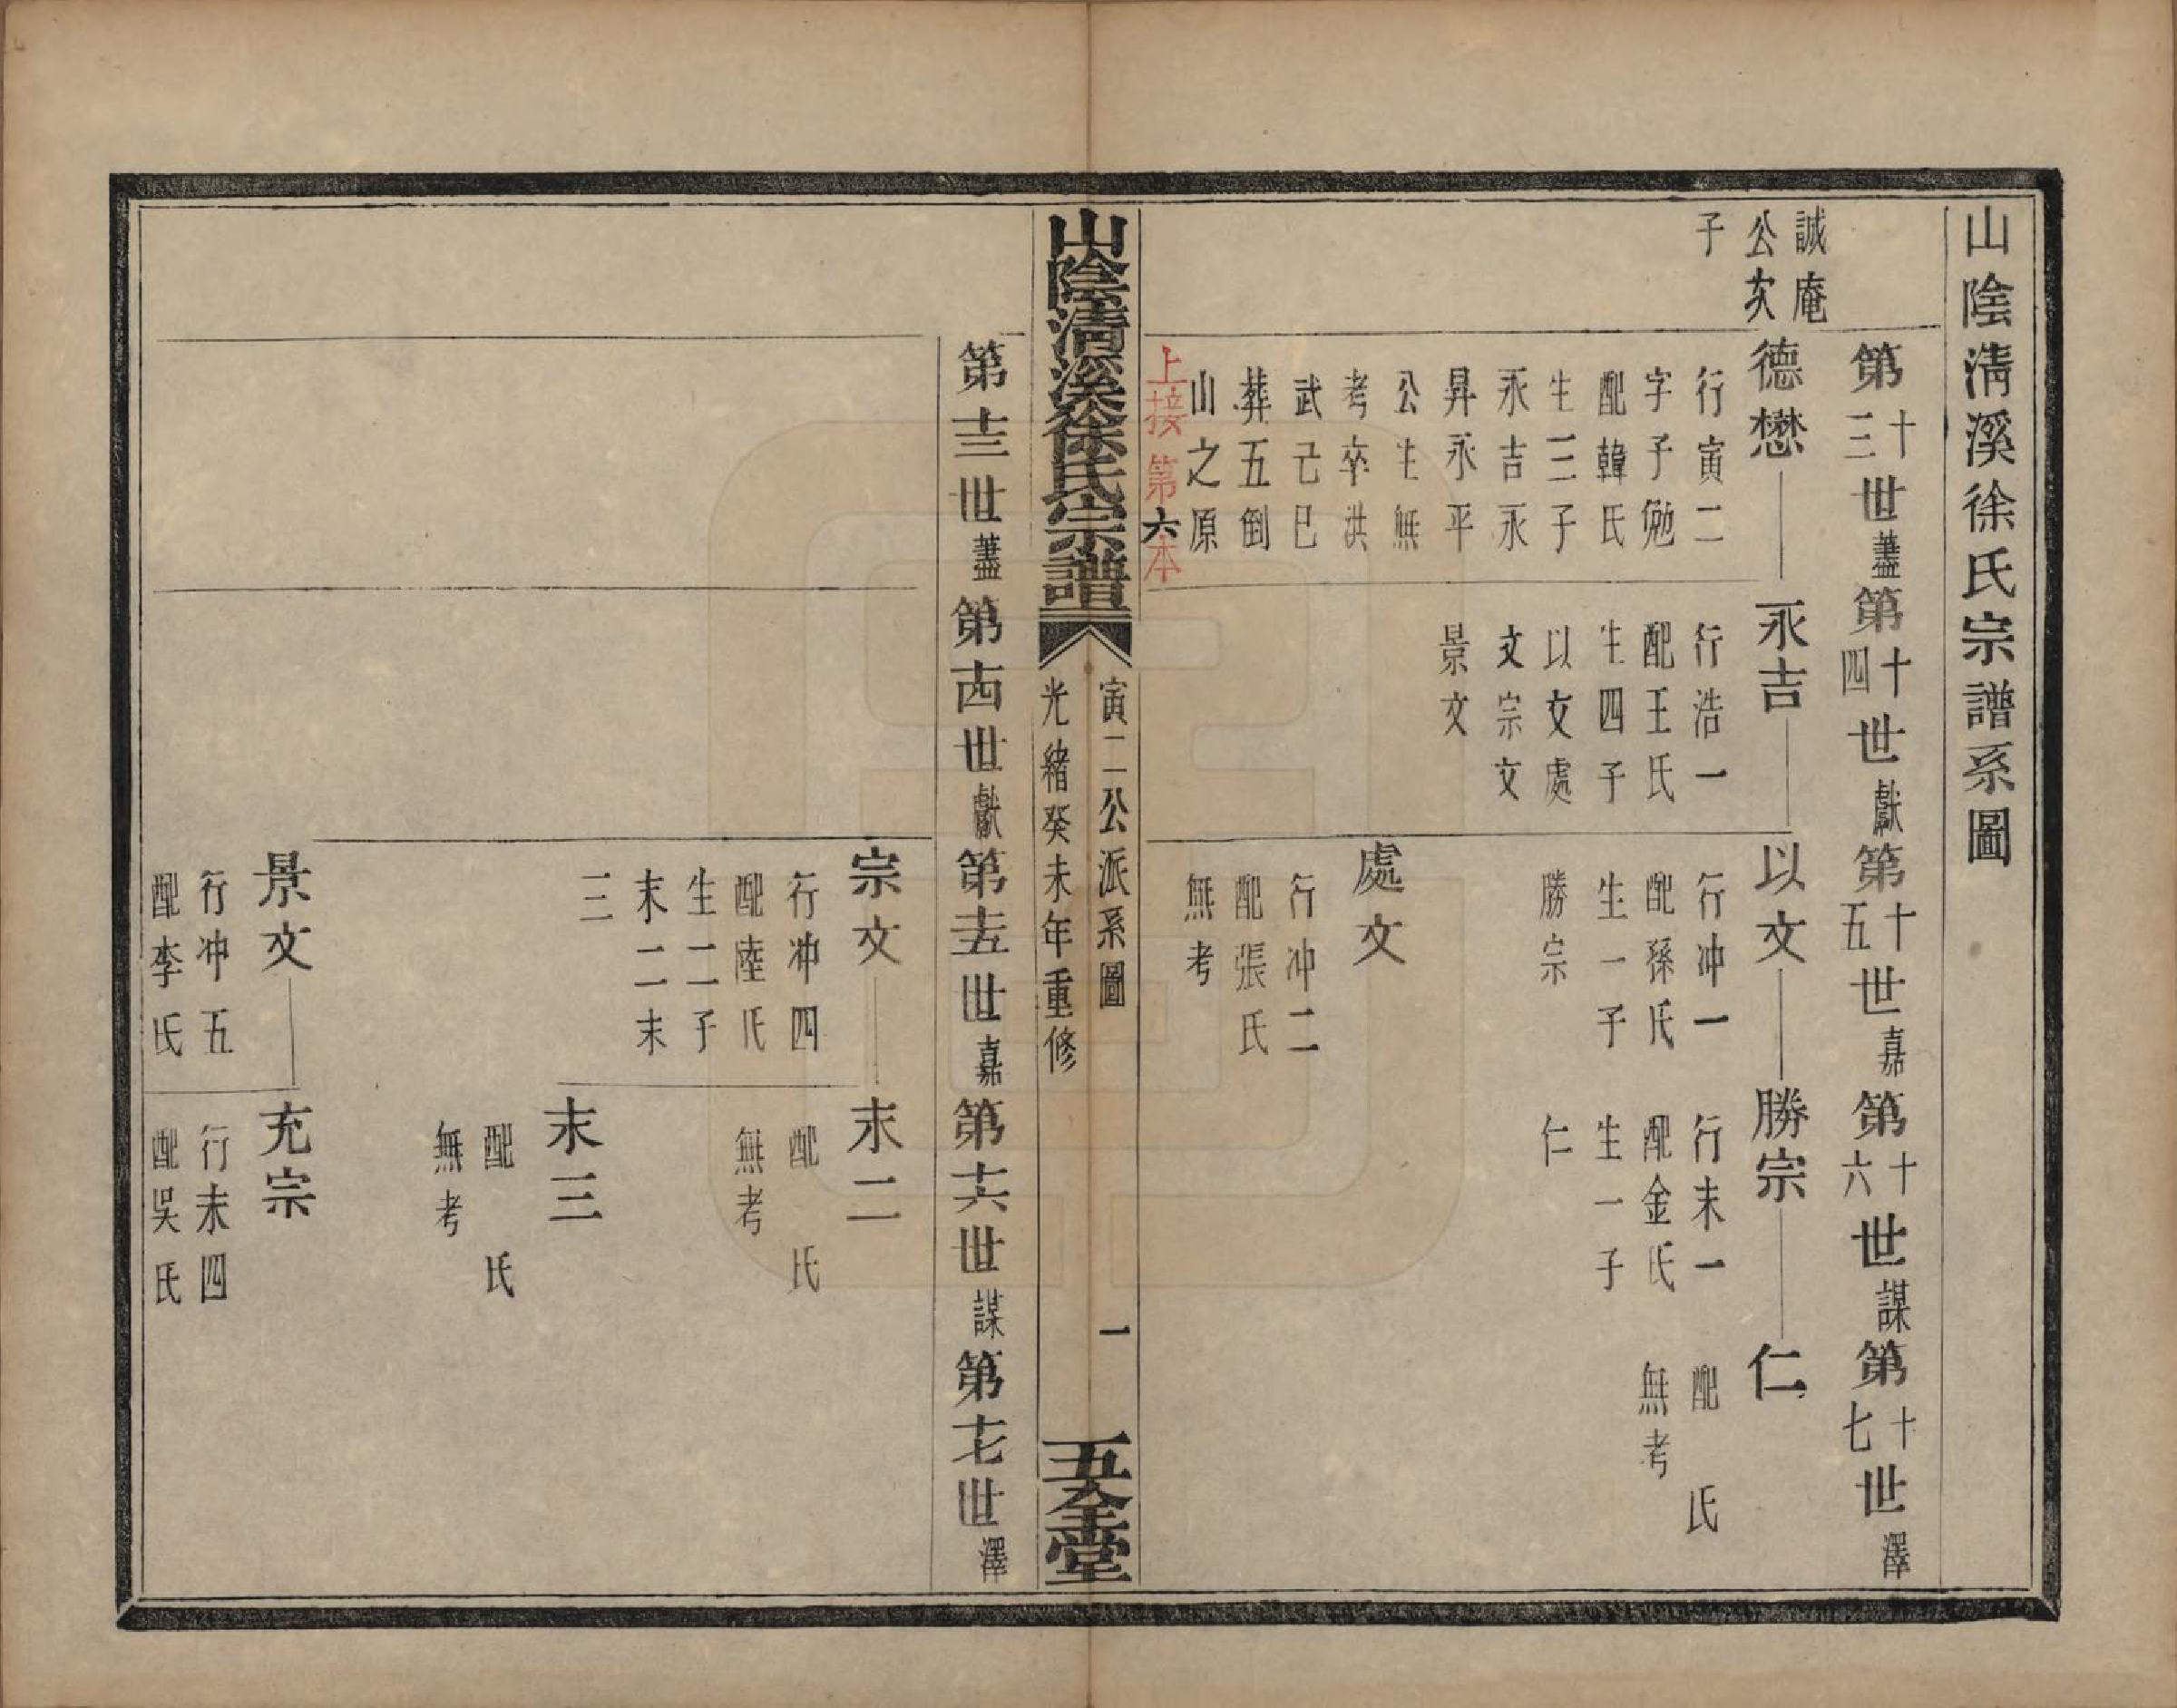 山陰清溪徐氏宗譜系圖
第十三世藎
第十四世獻
第十五世嘉
第十六世謀
第十七世澤
誠庵
公次
子
德懋
行寅二
字子勉
配韓氏
生三子
永吉永
昇永平
公生無
考卒洪
武己巳
葬五倒
山之原
上接第六本
永吉
行浩一
配王氏
生四子
以文處
文宗文
景文
以文
行冲一
配孫氏
生一子
勝宗
處文
行冲二
配張氏
無考
勝宗
行末一
配金氏
生一子
仁
仁
配 氏
無考
山陰清溪徐氏宗譜
寅二公派系圖
一
光緒癸未年重修
五全堂
第十三世藎
第十四世獻
第十五世嘉
第十六世謀
第十七世澤
宗文
行冲四
配陸氏
生二子
末二末
三
末二
配 氏
無考
末三
配 氏
無考
景文
行冲五
配李氏
充宗
行末四
配吳氏